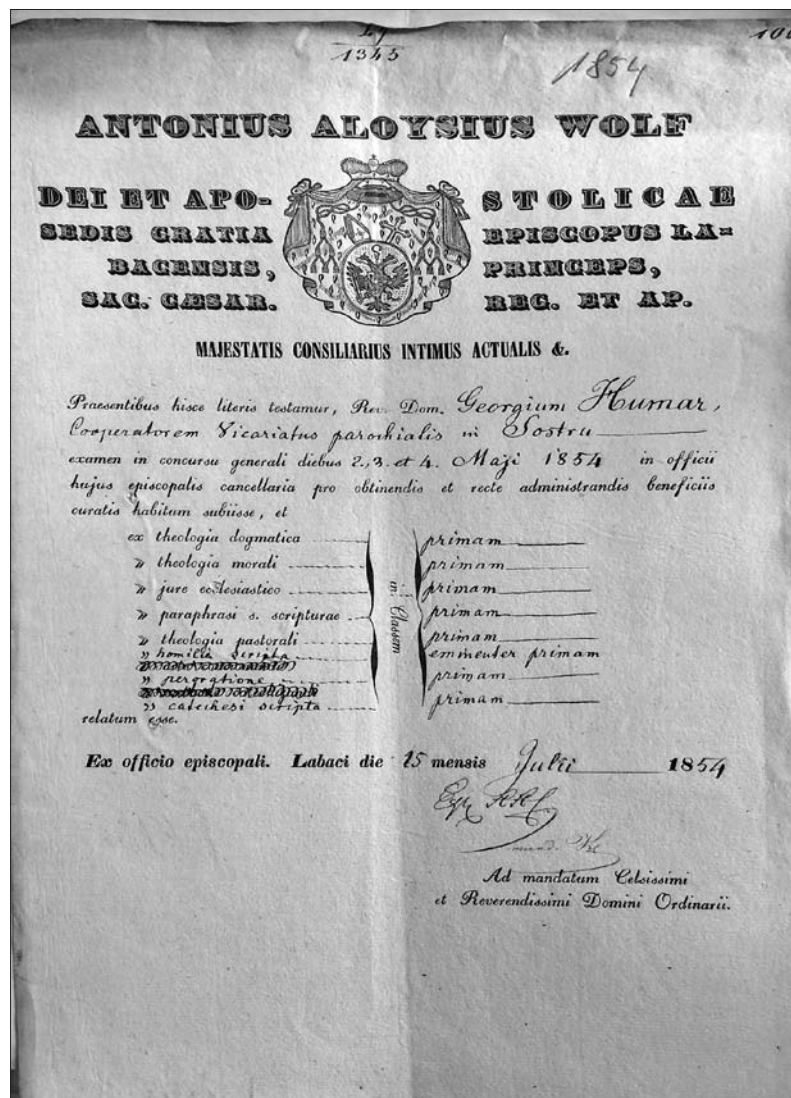 1345
1854
ANTONIUS ALOYSIUS WOLF
DEI ET APO- STOLICAE
SEDIS GRATIA EPISCOPUS LA=
BACENSIS, PRINCEPS,
SAC. CÆSAR. REG. ET AP.
MAJESTATIS CONSILIARIUS INTIMUS ACTUALIS &.
Praesentibus hisce literis testamur, Rev. Dom. Georgium Humar,
Cooperatorem Vicariatus parochialis in Sostru
examen in concursu generali diebus 2., 3. et 4. Maji 1854 in officii
hujus episcopalis cancellaria pro obtinendis et recte administrandis beneficiis
curatis habitum subiisse, et
ex theologia dogmatica primam
» theologia morali primam
» jure ecclesiastico primam
in Classem
» paraphrasi s. scripturae primam
» theologia pastorali primam
» homilia scripta eminenter primam
» peroratione primam
» catechesi scripta primam
relatum esse.
Ex officio episcopali. Labaci die 15 mensis Julii 1854
Ad mandatum Celsissimi
et Reverendissimi Domini Ordinarii.